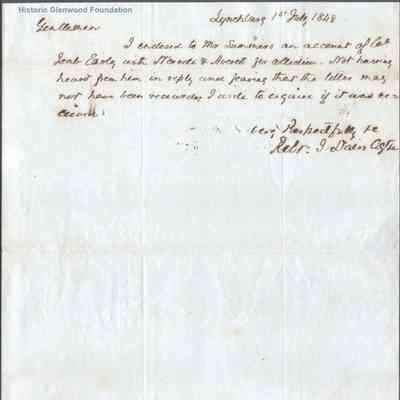 Historic Glenwood Foundation
Lynchburg 1st July 1848
Gentlemen
I enclosed to Mr Summers an account of Cob
Jont Early with for attention. Not having
heard from him in reply and fearing that the letter may
not have been received I write to enquire if it was re-
ceived.
very Respectfully &c
Robt. J Davis